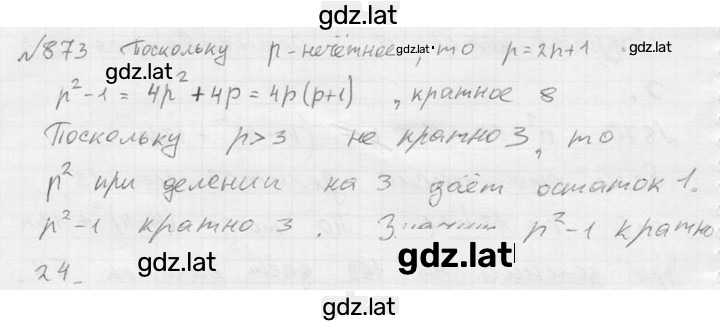 gdz.lat
№873 Поскольку p-нечётное gdz.lat, то p=2n+1.
gdz.lat
p²-1 = 4p²+4p = 4p(p+1), кратное 8
Поскольку p>3 не кратно 3, то
p² при делении на 3 даёт остаток 1.
p²-1 кратно 3. Значит p²-1 кратно
24. gdz.lat gdz.lat
gdz.lat